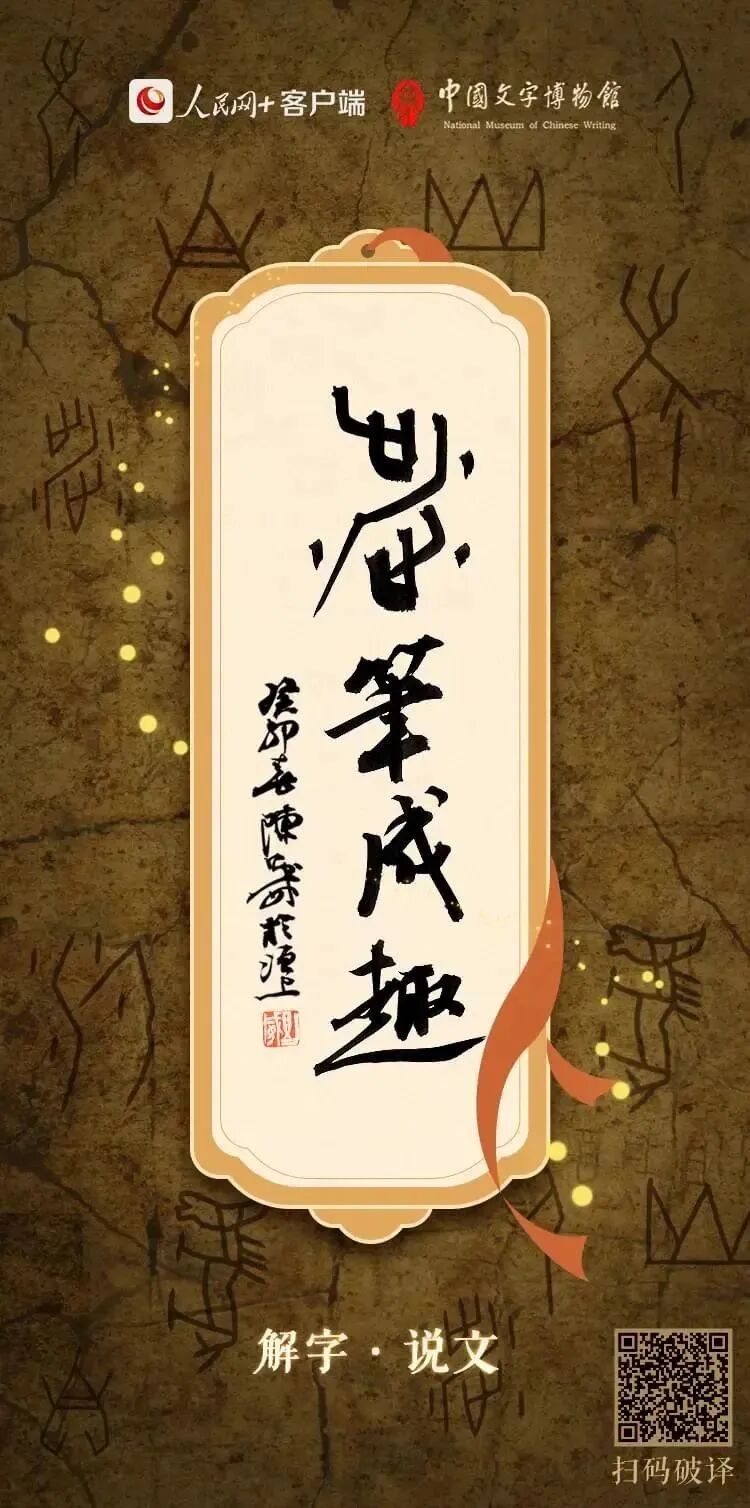 人民网+客户端
中國文字博物館
National Museum of Chinese Writing
筆成趣
癸卯春陳 於洹上
解字·说文
扫码破译